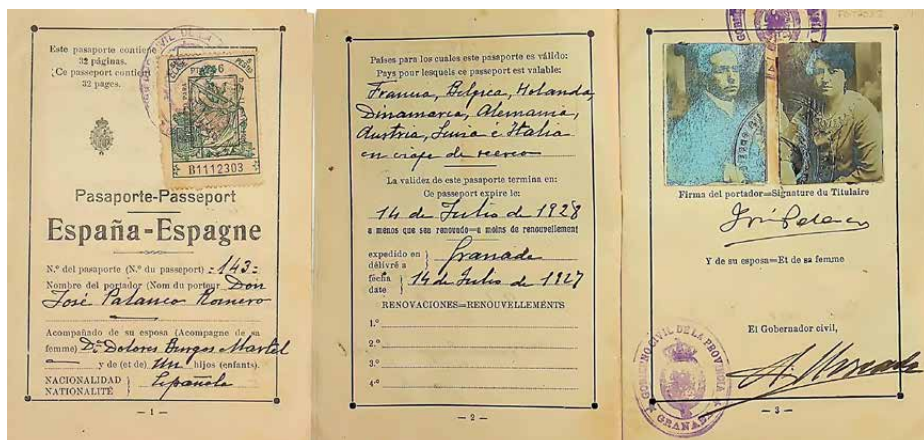 Este pasaporte contiene
32 páginas.
Ce passeport contient
32 pages.
B1112303
Pasaporte-Passeport
España-Espagne
N.º del pasaporte (N.º du passeport) :143:
Nombre del portador (Nom du porteur Don
José Palanco Romero
Acompañado de su esposa (Acompagne de sa
femme) Dª Dolores Burgos Martel
y de (et de) Un hijos (enfants).
NACIONALIDAD
NATIONALITÉ } Española
— 1 —
Países para los cuales este pasaporte es válido:
Pays pour lesquels ce passeport est valable:
Francia, Belgica, Holanda,
Dinamarca, Alemania,
Austria, Suiza é Italia
en viaje de recreo
La validez de este pasaporte termina en:
Ce passeport expire le:
14 de Julio de 1928
a menos que sea renovado=a moins de renouvellement
expedido en
délivré a } Granada
fecha
date } 14 de Julio de 1927
RENOVACIONES=RENOUVELLEMENTS
1.º
2.º
3.º
4.º
— 2 —
Firma del portador=Signature du Titulaire
José Palanco
Y de su esposa=Et de sa femme
El Gobernador civil,
GOBIERNO CIVIL DE LA PROVINCIA
GRANADA
— 3 —